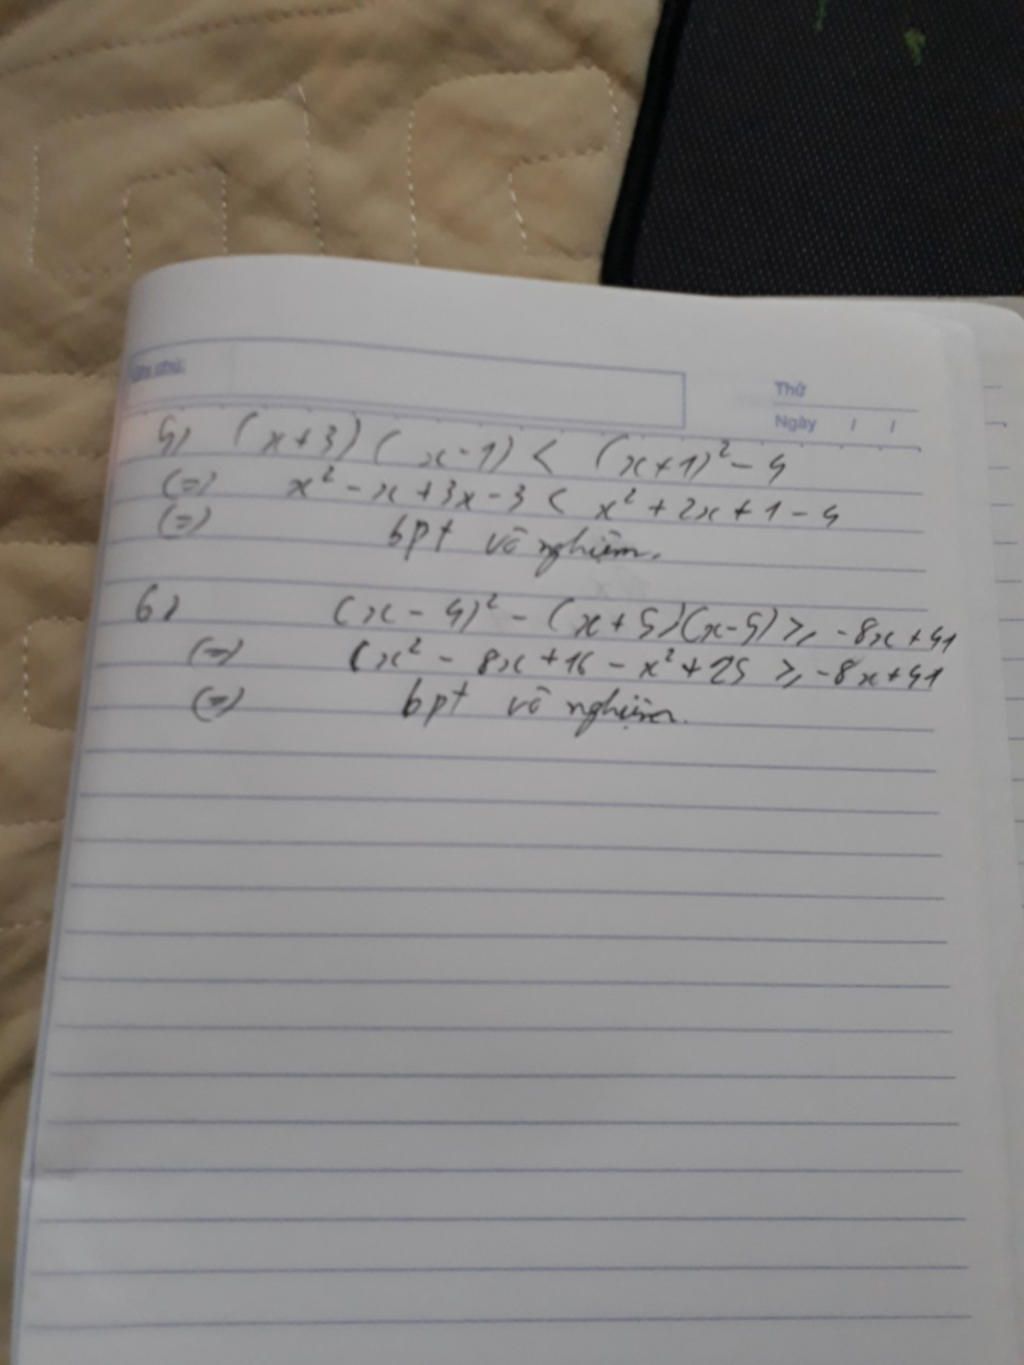 Ghi chú:
Thứ
Ngày / /
5) (x+3)(x-1) < (x+1)² - 4
(=) x² - x + 3x - 3 < x² + 2x + 1 - 4
(=) bpt vô nghiệm.
6) (x - 4)² - (x+5)(x-5) ≥ -8x + 41
(=) (x² - 8x + 16 - x² + 25 ≥ -8x + 41
(=) bpt vô nghiệm.